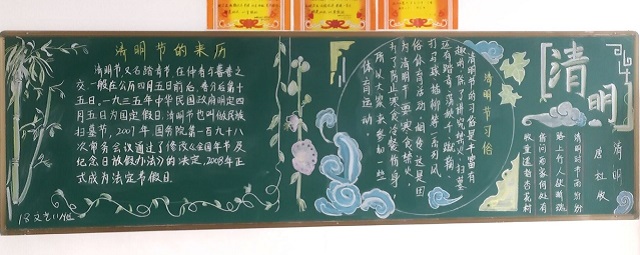 清明节的来历
清明节又名踏青节,在仲春与暮春之
交,一般在公历四月五日前后,春分后第十
五日,一九三五年中华民国政府明定四
月五日为国定假日清明节,也叫做民族
扫墓节,2007年国务院第一百九十八
次常务会议通过了修改《全国年节及
纪念日放假办法》的决定,2008年正
式成为法定节假日。
清明节习俗
清明节的习俗是丰富有
趣的,除了讲究禁火、扫墓
还有踏青、荡秋千、蹴鞠、
打马球、插柳等一系列风
俗体育活动。相传这是因
为清明节要寒食禁火,
为了防止寒食冷餐伤身,
所以大家来参加一些
体育运动。
清明
清明
唐 杜牧
清明时节雨纷纷
路上行人欲断魂
借问酒家何处有
牧童遥指杏花村